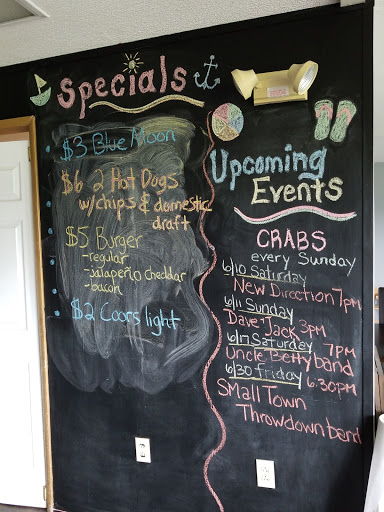 Specials
$3 Blue Moon
$6 2 Hot Dogs
w/chips & domestic
draft
$5 Burger
-regular
-jalapeño Cheddar
-bacon
$2 Coors light
Upcoming
Events
CRABS
every Sunday
6/10 Saturday
New Direction 7pm
6/11 Sunday
Dave Jack 3pm
6/17 Saturday 7pm
Uncle Betty band
6/30 friday 6:30pm
Small Town
Throwdown band